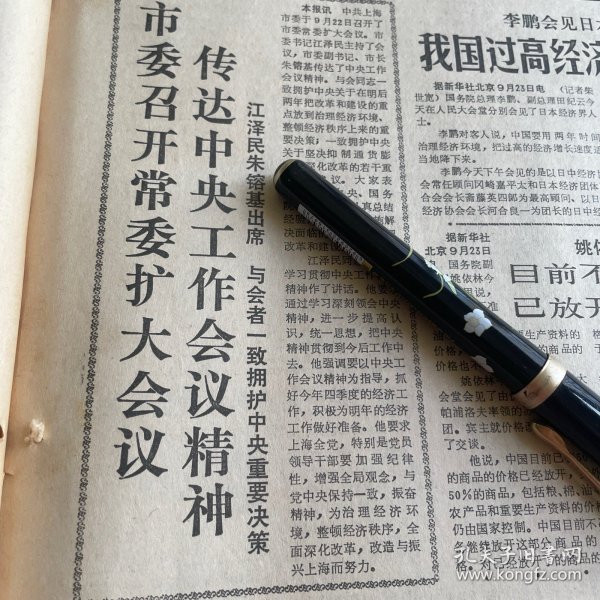 市委召开常委扩大会议
传达中央工作会议精神
江泽民朱镕基出席 与会者一致拥护中央重要决策
本报讯 中共上海
市委于9月22日召开了
市委常委扩大会议。市
委书记江泽民主持了会
议，市委副书记、市长
朱镕基传达了中央工作
会议精神。与会同志一
致拥护中央关于在明后
两年把改革和建设的重
点放到治理经济环境、
整顿经济秩序上来的重
要决策；一致拥护中央
关于坚决抑制通货膨
深化改革的若干重
议。大家表
央、国务
总结
解
决面临
改革和建设
江泽民同
学习贯彻中央工
精神作了讲话。他要
通过学习深刻领会中央
精神，进一步提高认
识，统一思想，把中央
精神贯彻到今后工作中
去。他强调要以中央工
作会议精神为指导，抓
好今年四季度的经济工
作，积极为明年的经济
工作做好准备。他要求
上海全党，特别是党员
领导干部要加强纪律
性，增强全局观念，与
党中央保持一致，振奋
精神，为治理经济环
境，整顿经济秩序，全
面深化改革，改造与振
兴上海而努力。
李鹏会见日
我国过高经济
据新华社北京9月23日电 （记者柴
世宽）国务院总理李鹏、副总理田纪云今
天在人民大会堂分别会见了日本经济界人
士。
李鹏对客人说，中国要用两年时间
治理经济环境，把过高的经济增长速度适
当地降下来。
李鹏今天下午会见的是以日中经济
会常任顾问冈崎嘉平太和日本经济团体
合会会长斋藤英四郎为最高顾问、以日
经济协会会长河合良一为团长的日中经
据新华社
北京9月23日
国务院副
姚依林今
姚依
目前不
已放开
要生产资料的
的商品的
价格也不
姚依林
会堂会见了由
帕浦洛夫率领的
团。宾主就价格
了交谈。
他说，中国目前已
的商品的价格已经放开，
50%的商品，包括粮、棉、油
农产品和重要生产资料的价格
仍由国家控制。中国目前不
备继续放开这部分商品的
格。对已经放开了的商品的
孔夫子旧书网
www.kongfz.com